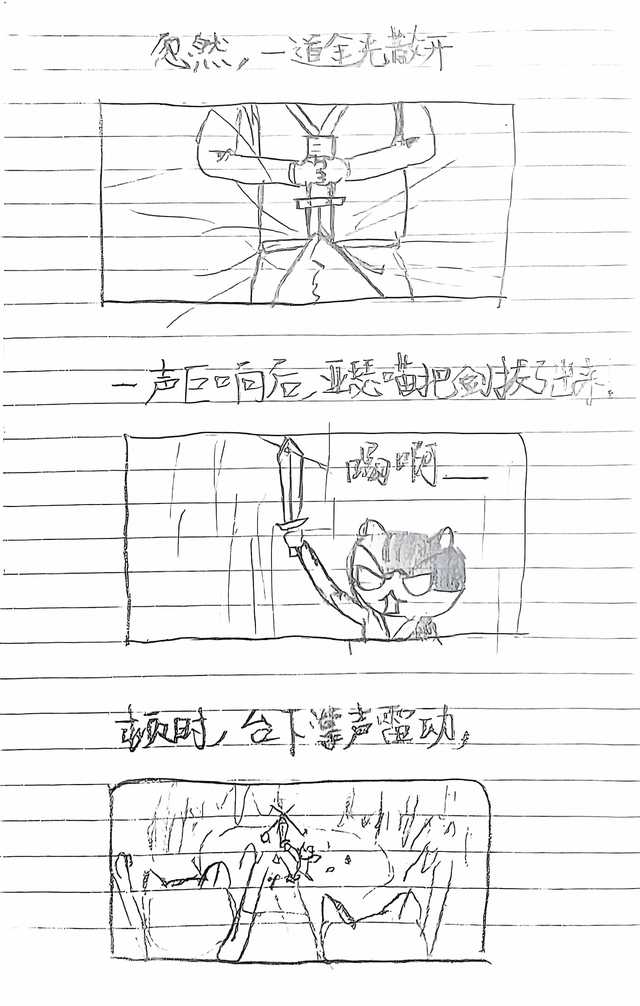 忽然，一道金光散开
一声巨响后，亚瑟喵把剑拔了出来。
喵啊——
顿时，台下掌声雷动，